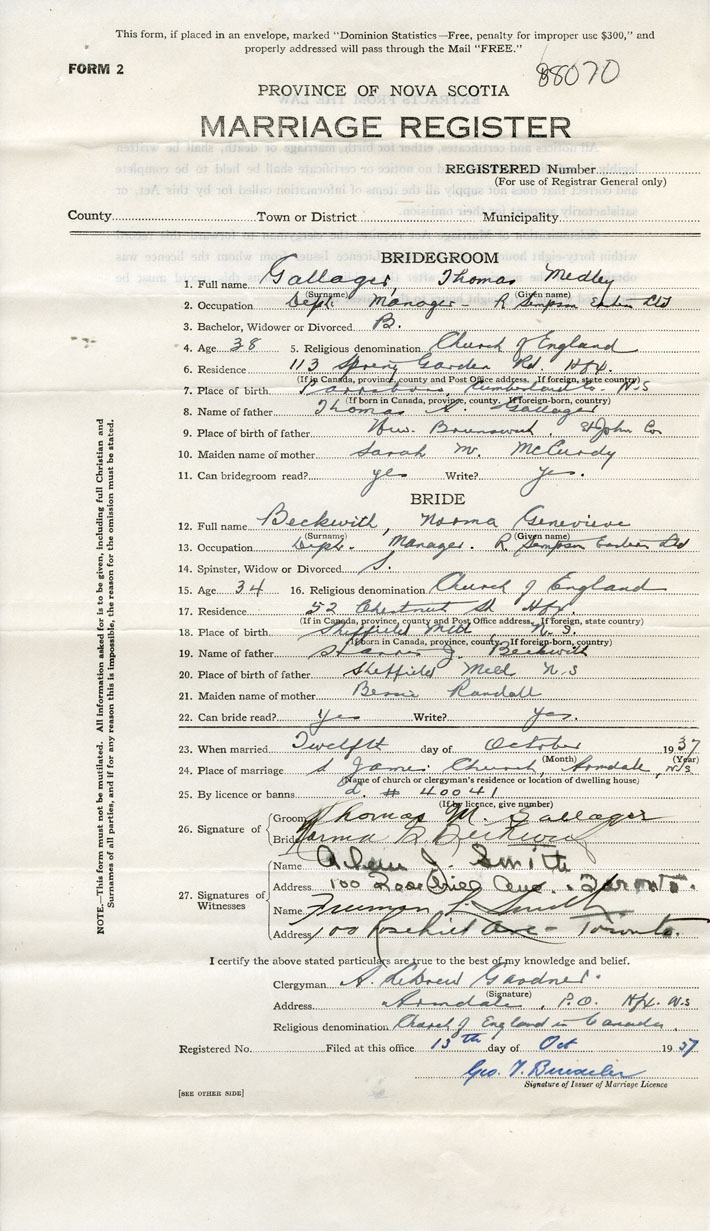 This form, if placed in an envelope, marked "Dominion Statistics—Free, penalty for improper use $300," and
properly addressed will pass through the Mail "FREE."
FORM 2
88070
PROVINCE OF NOVA SCOTIA
MARRIAGE REGISTER
REGISTERED Number
(For use of Registrar General only)
County Town or District Municipality
BRIDEGROOM
1. Full name Gallager, Thomas Medley
(Surname) (Given name)
2. Occupation Dept. Manager - R Simpson Eastern Ltd
3. Bachelor, Widower or Divorced B.
4. Age 38 5. Religious denomination Church of England
6. Residence 113 Spring Garden Rd. Hfx.
(If in Canada, province, county and Post Office address. If foreign, state country)
7. Place of birth Parrsboro, Cumberland Co. N.S
(If born in Canada, province, county. If foreign-born, country)
8. Name of father Thomas Gallager
9. Place of birth of father New Brunswick, St John Co
10. Maiden name of mother Sarah M. McCurdy
11. Can bridegroom read? yes Write? yes.
BRIDE
12. Full name Beckwith, Norma Genevieve
(Surname) (Given name)
13. Occupation Dept. Manager. R Simpson Eastern Ltd
14. Spinster, Widow or Divorced S.
15. Age 34 16. Religious denomination Church of England
17. Residence 52 Chestnut St Hfx.
(If in Canada, province, county and Post Office address. If foreign, state country)
18. Place of birth Sheffield Mill N.S.
(If born in Canada, province, county. If foreign-born, country)
19. Name of father J. Beckwith
20. Place of birth of father Sheffield Mill N.S
21. Maiden name of mother Bessie Randall
22. Can bride read? Yes Write? Yes.
23. When married Twelfth day of October 1937
(Month) (Year)
24. Place of marriage S James Church, Armdale, N.S
(Name of church or clergyman's residence or location of dwelling house)
25. By licence or banns L. # 40041
(If by licence, give number)
26. Signature of Groom Thomas M. Gallager
Bride Norma G Beckwith
27. Signatures of Witnesses
Name J. Smith
Address 100 Rosehill Ave. Toronto.
Name Freeman L. Smith
Address 100 Rosehill Ave - Toronto.
I certify the above stated particulars are true to the best of my knowledge and belief.
Clergyman A. LeDrew Gardner
(Signature)
Address Armdale, P.O. Hfx. N.S
Religious denomination Church of England in Canada
Registered No. Filed at this office 13th day of Oct 1937
Geo. T.
Signature of Issuer of Marriage Licence
[SEE OTHER SIDE]
NOTE.—This form must not be mutilated. All information asked for is to be given, including full Christian and
Surnames of all parties, and if for any reason this is impossible, the reason for the omission must be stated.